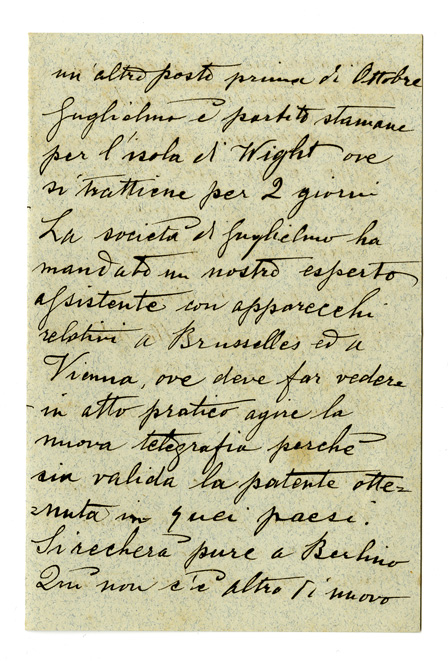 un'altro posto prima di Ottobre
Guglielmo è partito stamane
per l'isola di Wight ove
si trattiene per 2 giorni
La società di Guglielmo ha
mandato un nostro esperto
assistente con apparecchi
relativi a Brusselles ed a
Vienna, ove deve far vedere
in atto pratico agire la
nuova telegrafia perchè
sia valida la patente otte=
=nuta in quei paesi.
Si recherà pure a Berlino
Quì non c'è altro di nuovo